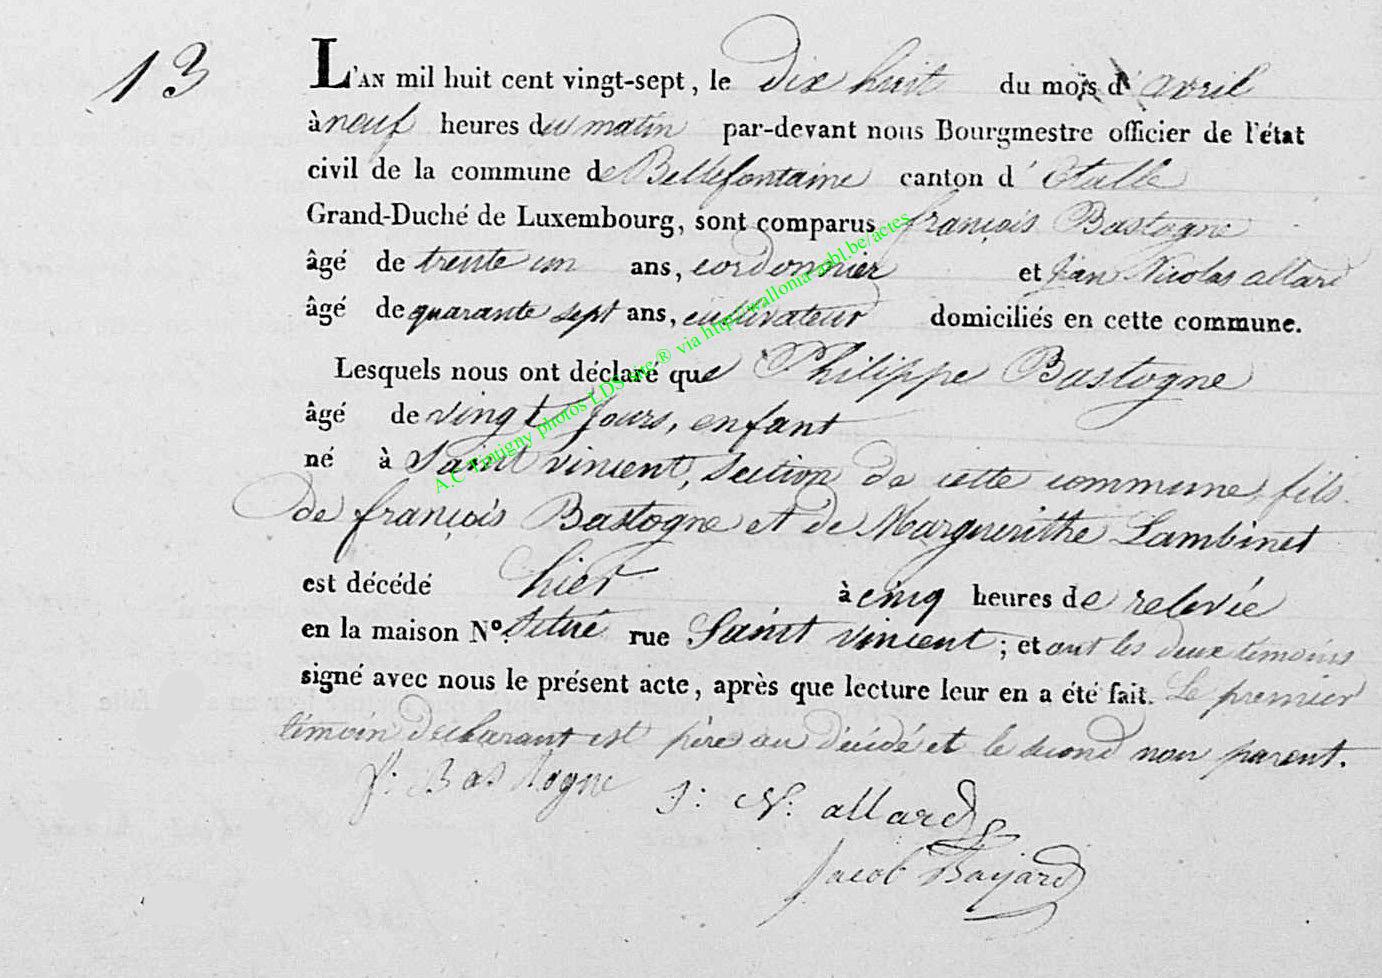 13
L'AN mil huit cent vingt-sept, le dix huit du mois d'avril
à neuf heures du matin par-devant nous Bourgmestre officier de l'état
civil de la commune de Bellefontaine canton d'Etalle
Grand-Duché de Luxembourg, sont comparus françois Bastogne
âgé de trente un ans, cordonnier et Jean Nicolas allard
âgé de quarante sept ans, cultivateur domiciliés en cette commune.
Lesquels nous ont déclaré que Philippe Bastogne
âgé de vingt Jours, enfant
né à Saint vincent, section de cette commune, fils
de françois Bastogne et de Marguerithe Lambinet
est décédé hier à cinq heures de relevée
en la maison N°. situé rue Saint vincent ; et ont les deux témoins
signé avec nous le présent acte, après que lecture leur en a été fait. Le premier
témoin déclarant est père au décédé et le second non parent.
f: Bastogne J: N: allard
Jacob Bayard
A.C Tintigny photos LDS arc.® via http://wallonia-asbl.be/actes